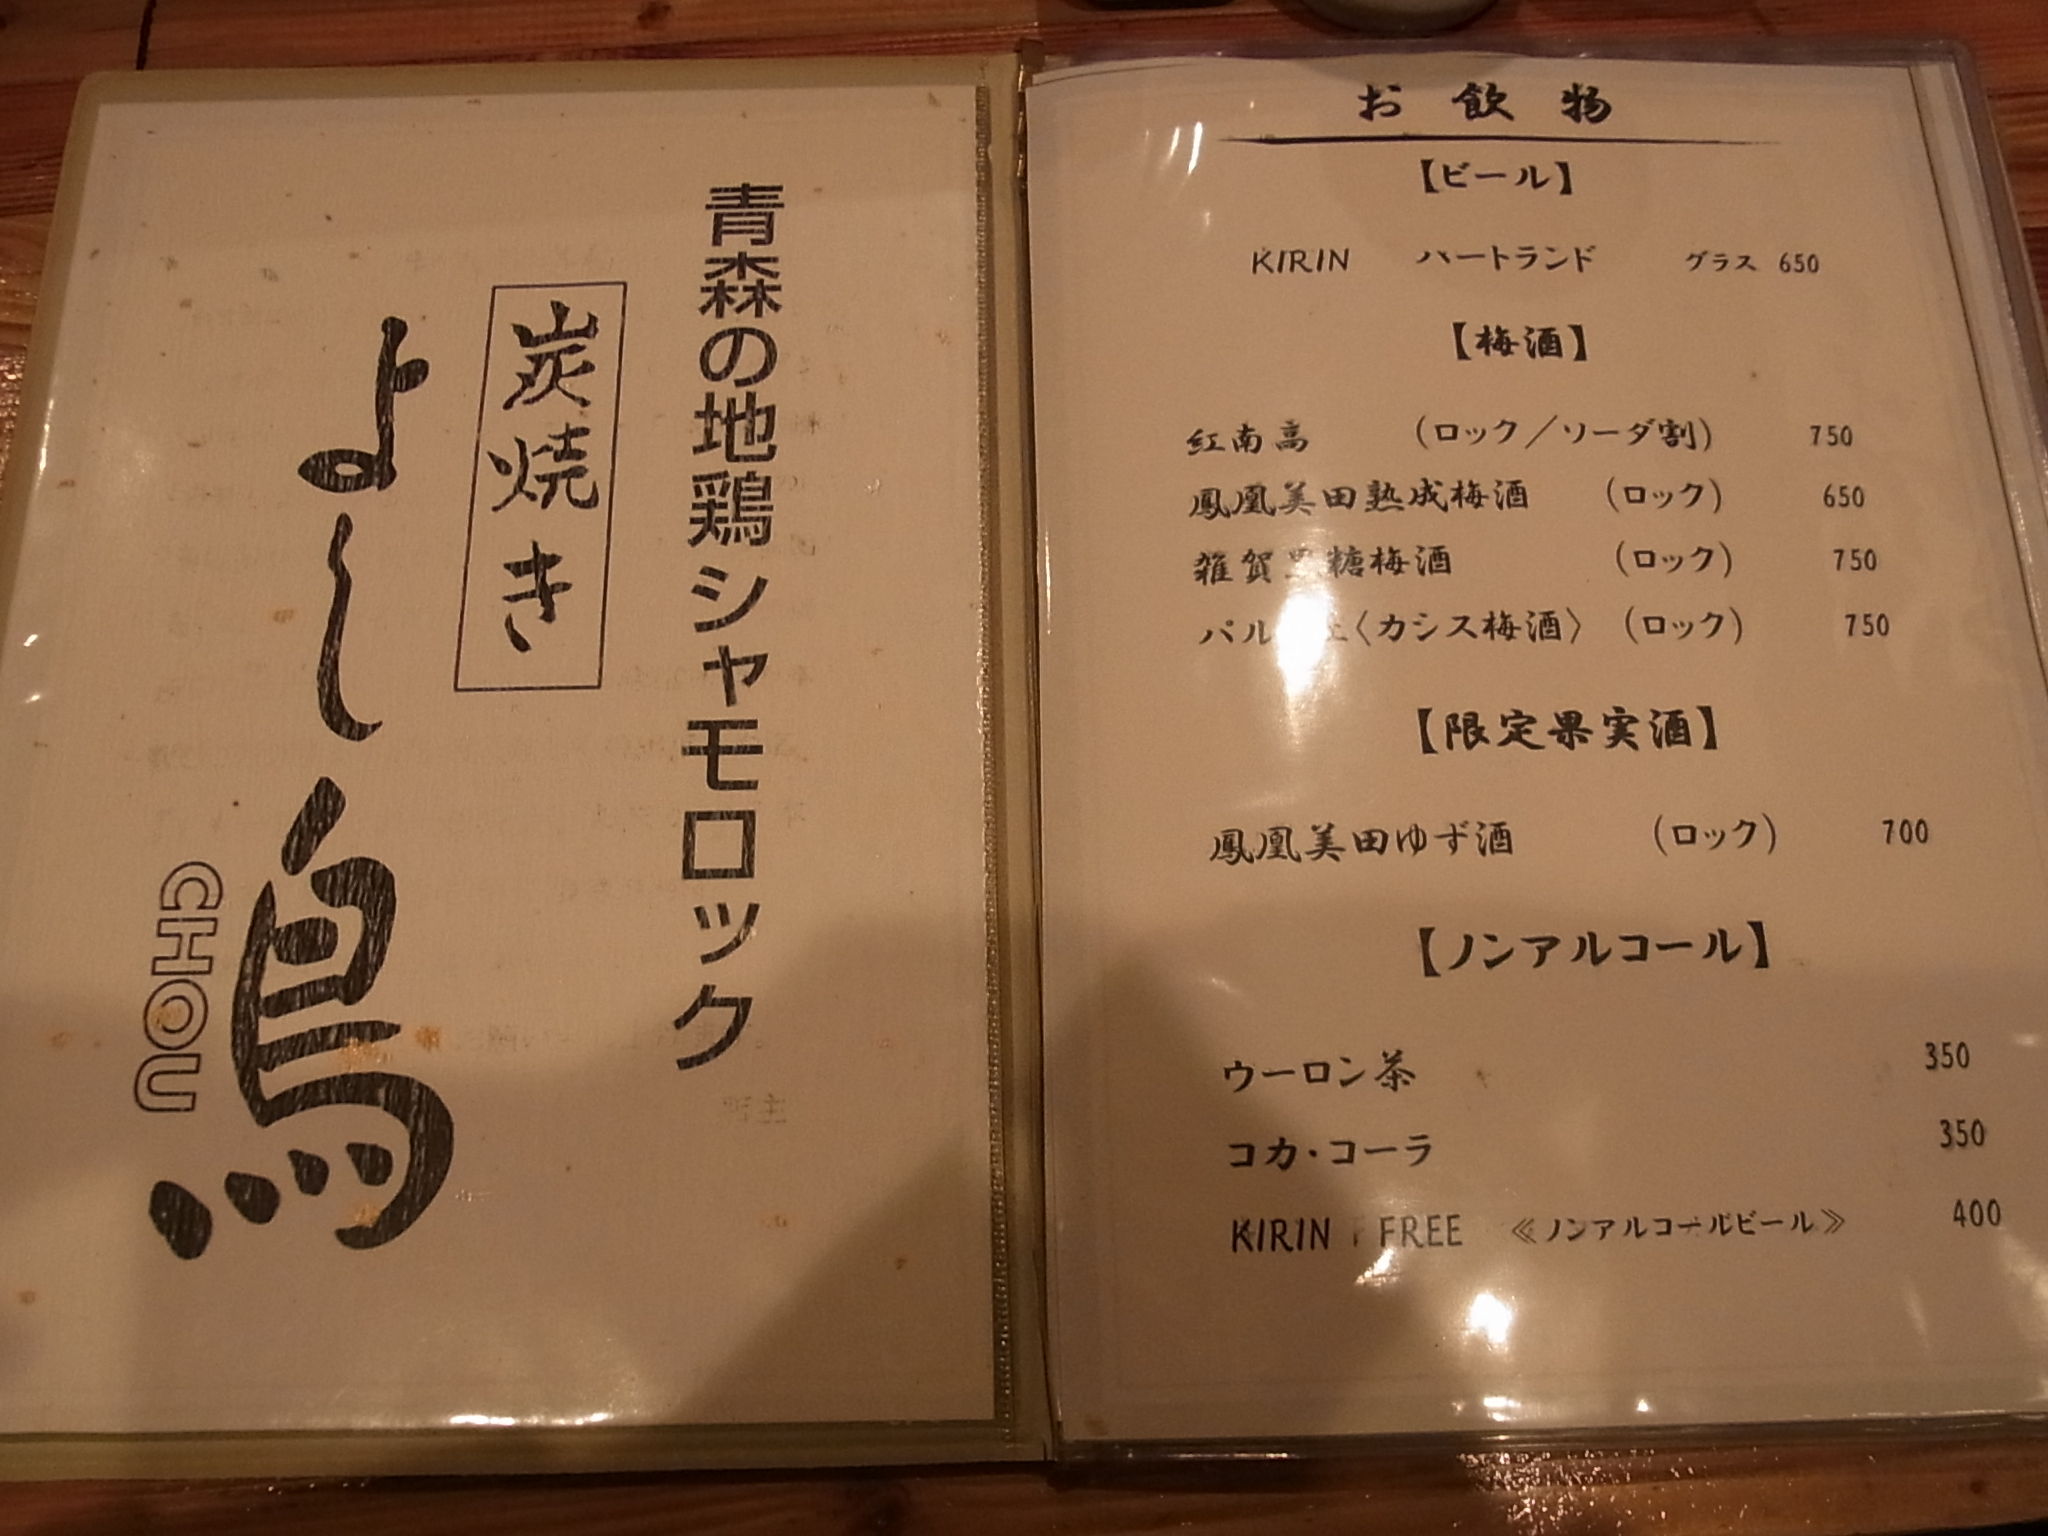 青森の地鶏シャモロック
炭焼き
よし鳥
CHOU
お飲物
【ビール】
KIRIN ハートランド グラス 650
【梅酒】
紅南高 (ロック/ソーダ割) 750
鳳凰美田熟成梅酒 (ロック) 650
雑賀黒糖梅酒 (ロック) 750
〈カシス梅酒〉 (ロック) 750
【限定果実酒】
鳳凰美田ゆず酒 (ロック) 700
【ノンアルコール】
ウーロン茶 350
コカ・コーラ 350
KIRIN FREE 《ノンアルコールビール》 400